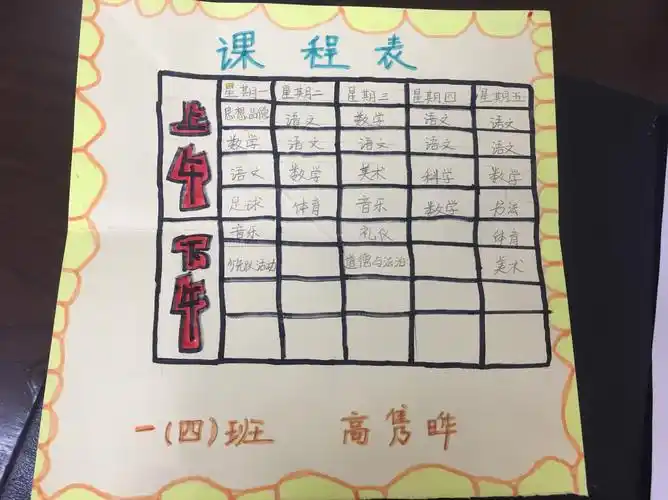 课程表
上午
星期一 星期二 星期三 星期四 星期五
思想品德 语文 数学 语文 语文
数学 语文 语文 语文 语文
语文 数学 美术 科学 数学
足球 体育 音乐 数学 书法
下午
音乐 礼仪 体育
少先队活动 道德与法治 美术
一(四)班 高隽晔